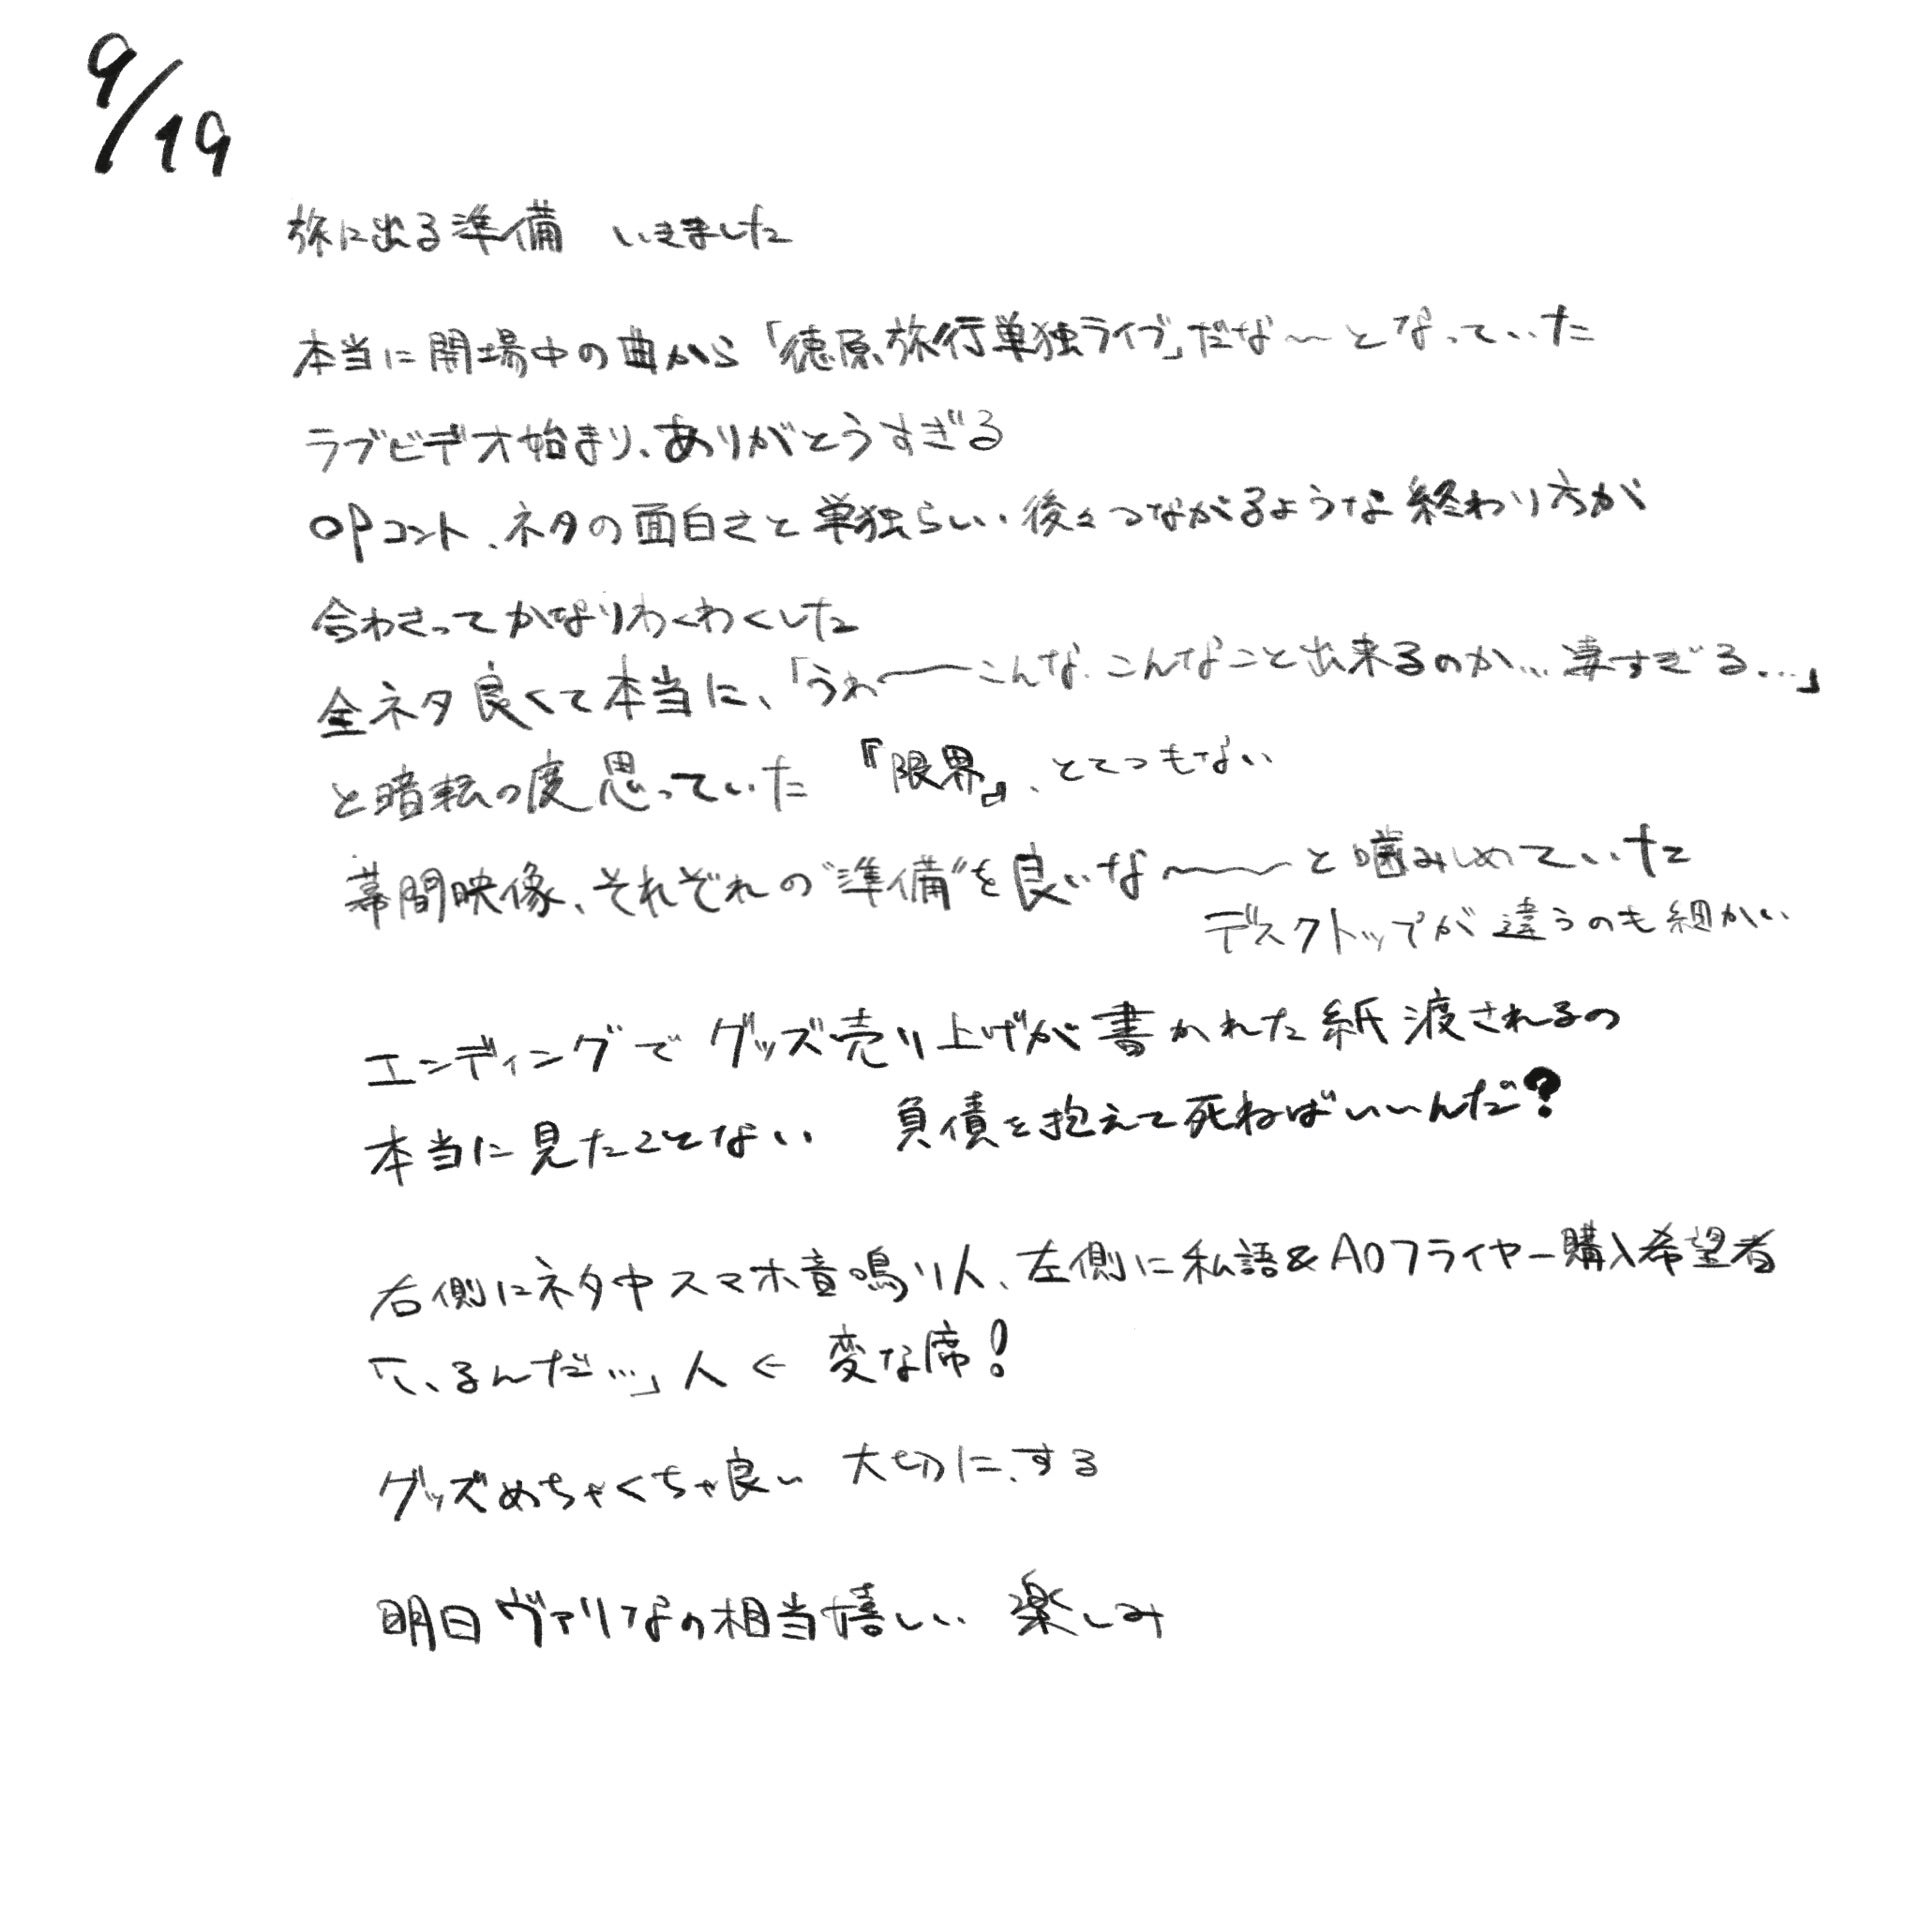 9/19
旅に出る準備 いきました
本当に開場中の曲から「徳原旅行単独ライブ」だな〜となっていた
ラブビデオ始まり、ありがとうすぎる
OPコント、ネタの面白さと単独らしい後々つながるような終わり方が
合わさってかなりわくわくした
全ネタ良くて本当に、「うわ〜こんな、こんなこと出来るのか…凄すぎる…」
と暗転の度思っていた 『限界』、とてつもない
幕間映像、それぞれの"準備"を良いな〜と噛みしめていた
デスクトップが違うのも細かい
エンディングでグッズ売り上げが書かれた紙渡されるの
本当に見たことない 負債を抱えて死ねばいいんだ?
右側にネタ中スマホ音鳴り人、左側に私語&A0フライヤー購入希望者
「いるんだ…」人 ← 変な席!
グッズめちゃくちゃ良い 大切にする
明日ヴァリなの相当嬉しい 楽しみ